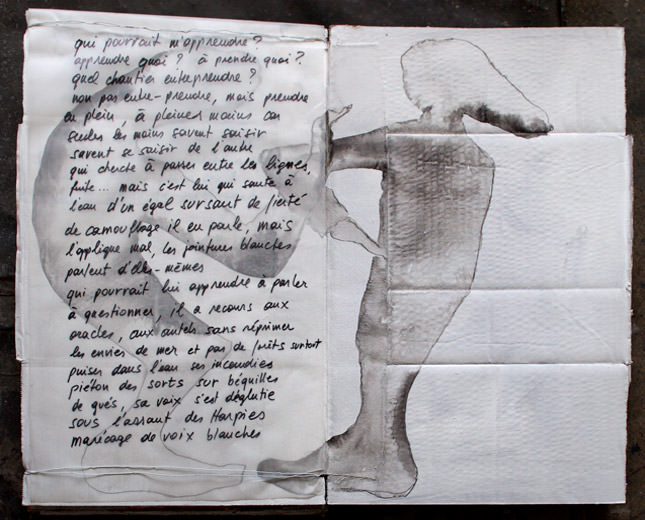 qui pourrait m'apprendre ?
apprendre quoi ? à prendre quoi ?
quel chantier entreprendre ?
non pas entre-prendre, mais prendre
en plein, à pleines mains car
seules les mains savent saisir
savent se saisir de l'autre
qui cherche à passer entre les lignes,
fuite... mais c'est lui qui saute à
l'eau d'un égal sursaut de fierté
de camouflage il en parle, mais
l'applique mal, les jointures blanches
parlent d'elles-mêmes
qui pourrait lui apprendre à parler
à questionner, il a recours aux
oracles, aux autels sans réprimer
les envies de mer et pas de forêts surtout
puiser dans l'eau ses incendies
piéton des sorts sur béquilles
de gués, sa voix s'est déglutie
sous l'assaut des Harpies
marécage de voix blanches